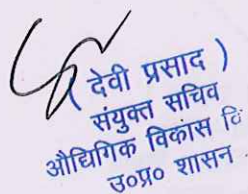 ( देवी प्रसाद )
संयुक्त सचिव
औद्योगिक विकास वि
उ०प्र० शासन